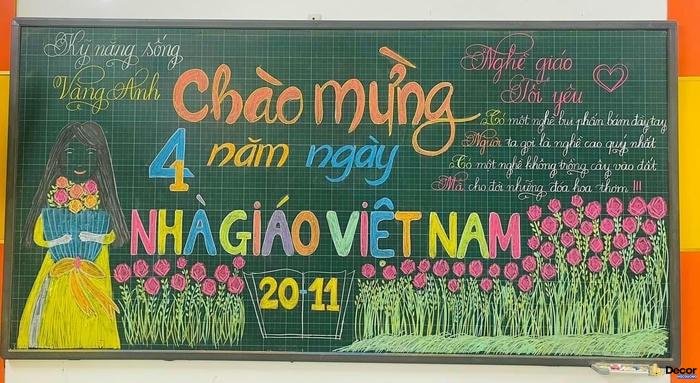 Kỹ năng sống
Vạng Anh
Chào mừng
41 năm ngày
NHÀ GIÁO VIỆT NAM
20-11
Nghề giáo
Tôi yêu
Có một nghề bụi phấn bám đầy tay
Người ta gọi là nghề cao quý nhất
Có một nghề không trồng cây vào đất
Mà cho đời những đóa hoa thơm !!!
Decor